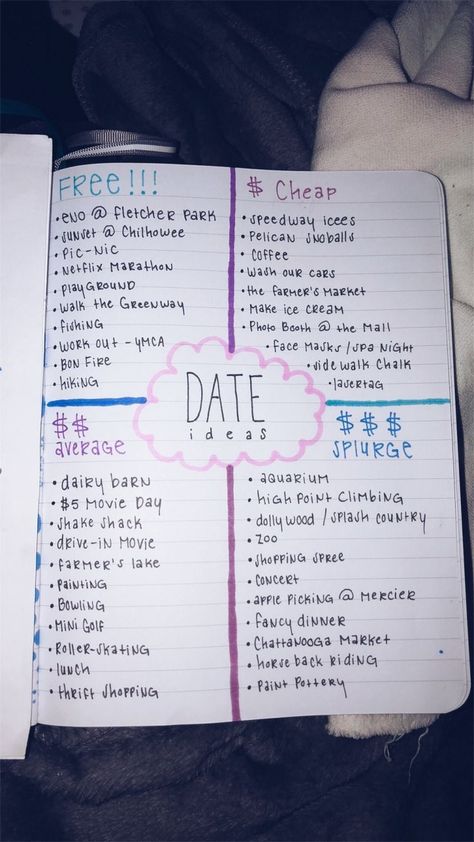 FREE!!!
• ENO @ Fletcher Park
• sunset @ Chilhowee
• Pic-Nic
• Netflix Marathon
• Playground
• Walk the Greenway
• Fishing
• Work out - YMCA
• Bon Fire
• hiking
$ Cheap
• Speedway icees
• Pelican snoballs
• Coffee
• Wash our cars
• the Farmer's Market
• Make ice cream
• Photo Booth @ the Mall
• Face Masks / Spa Night
• sidewalk chalk
• lasertag
DATE
ideas
$$
average
• dairy barn
• $5 Movie Day
• shake shack
• drive-in Movie
• Farmer's lake
• Painting
• Bowling
• Mini Golf
• Roller-skating
• lunch
• thrift shopping
$$$
SPLURGE
• aquarium
• high Point climbing
• dollywood / splash country
• zoo
• shopping spree
• concert
• apple Picking @ Mercier
• fancy dinner
• Chattanooga Market
• horseback riding
• Paint Pottery